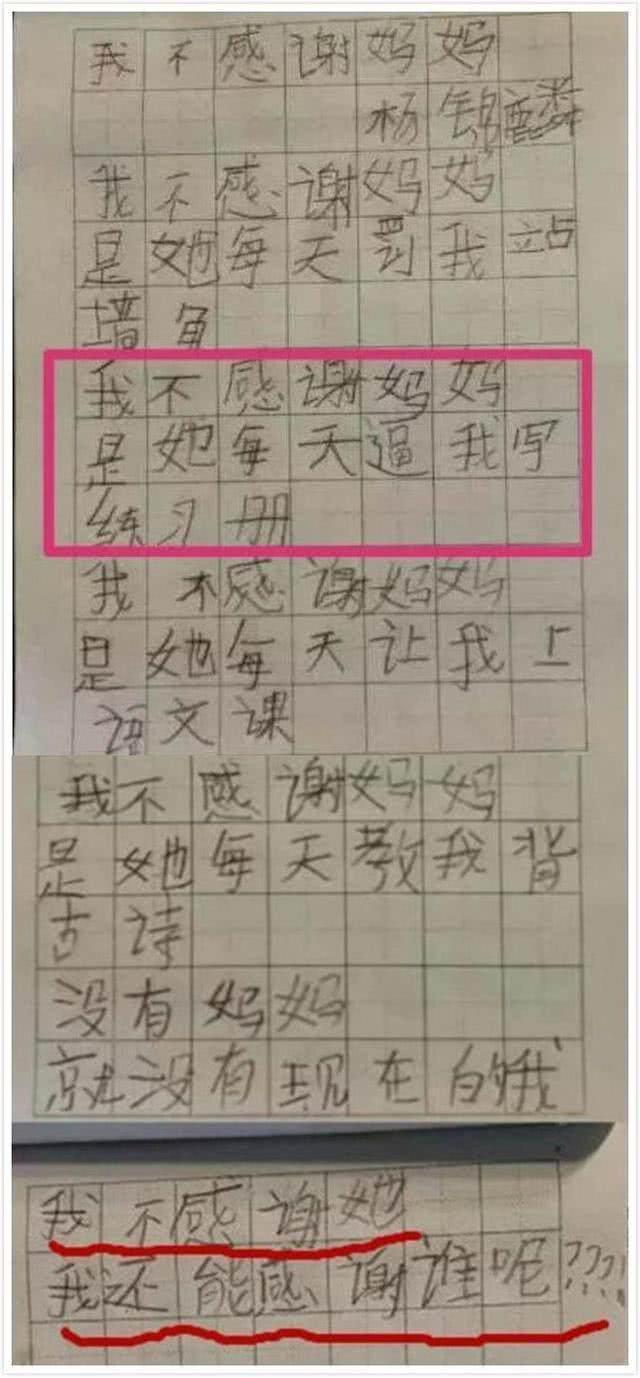 我不感谢妈妈
杨锦麟
我不感谢妈妈
是她每天罚我站
墙角
我不感谢妈妈
是她每天逼我写
练习册
我不感谢妈妈
是她每天让我上
语文课
我不感谢妈妈
是她每天教我背
古诗
没有妈妈
就没有现在的我
我不感谢她
我还能感谢谁呢???!